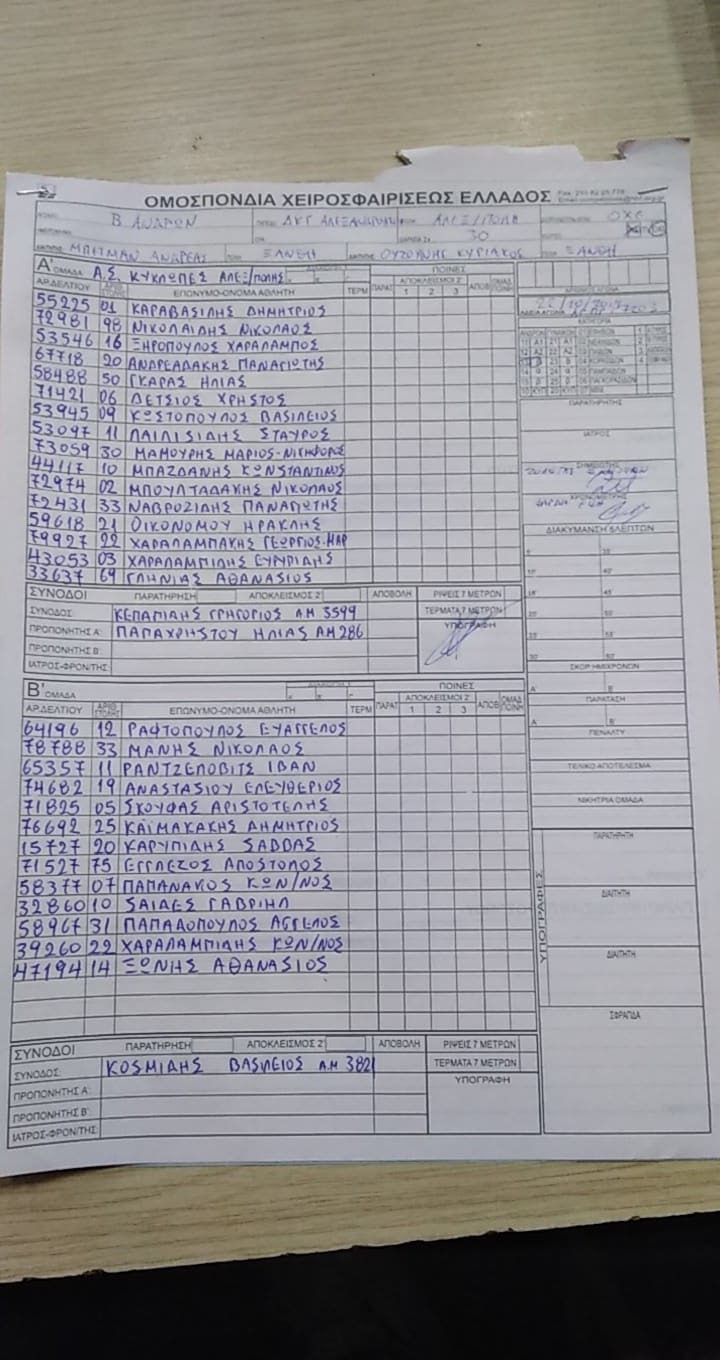 ΟΜΟΣΠΟΝΔΙΑ ΧΕΙΡΟΣΦΑΙΡΙΣΕΩΣ ΕΛΛΑΔΟΣ
Β ΑΝΔΡΩΝ
30
ΜΠΙΤΜΑΝ ΑΝΔΡΕΑΣ ΞΑΝΘΗ ΚΥΡΙΑΚΟΣ ΞΑΝΘΗ
Α' ΟΜΑΔΑ Α.Σ. ΚΥΚΛΩΠΕΣ ΑΛΕΞ/ΠΟΛΗΣ ΠΟΙΝΕΣ
ΑΡ.ΔΕΛΤΙΟΥ ΕΠΩΝΥΜΟ-ΟΝΟΜΑ ΑΘΛΗΤΗ ΤΕΡΜ ΠΑΡΑΤ ΑΠΟΚΛΕΙΣΜΟΙ 2' 1 2 3 ΑΠΟΒ ΟΜΑΔ ΠΟΙΝΗ
55225 01 ΚΑΡΑΒΑΣΙΛΗΣ ΔΗΜΗΤΡΙΟΣ
72981 98 ΝΙΚΟΛΑΙΔΗΣ ΝΙΚΟΛΑΟΣ
53546 16 ΞΗΡΟΠΟΥΛΟΣ ΧΑΡΑΛΑΜΠΟΣ
67718 20 ΑΝΔΡΕΑΔΑΚΗΣ ΠΑΝΑΓΙΩΤΗΣ
58488 50 ΓΚΑΡΑΣ ΗΛΙΑΣ
71421 06 ΔΕΤΣΙΟΣ ΧΡΗΣΤΟΣ
53945 09 ΚΩΣΤΟΠΟΥΛΟΣ ΒΑΣΙΛΕΙΟΣ
53097 11 ΠΑΙΛΙΣΙΔΗΣ ΣΤΑΥΡΟΣ
73059 30 ΜΑΜΟΥΡΗΣ ΜΑΡΙΟΣ-ΝΙΚΗΦΟΡΟΣ
44117 10 ΜΠΑΖΔΑΝΗΣ ΚΩΝΣΤΑΝΤΙΝΟΣ
72974 02 ΜΠΟΥΛΤΑΔΑΚΗΣ ΝΙΚΟΛΑΟΣ
72431 33 ΝΑΒΡΟΖΙΔΗΣ ΠΑΝΑΓΙΩΤΗΣ
59618 21 ΟΙΚΟΝΟΜΟΥ ΗΡΑΚΛΗΣ
79927 22 ΧΑΡΑΛΑΜΠΑΚΗΣ ΓΕΩΡΓΙΟΣ-ΜΑΡ
43053 03 ΧΑΡΑΛΑΜΠΙΔΗΣ ΕΥΡΙΠΙΔΗΣ
33637 69 ΓΛΗΝΙΑΣ ΑΘΑΝΑΣΙΟΣ
ΣΥΝΟΔΟΙ ΠΑΡΑΤΗΡΗΣΗ ΑΠΟΚΛΕΙΣΜΟΣ 2' ΑΠΟΒΟΛΗ ΡΙΨΕΙΣ 7 ΜΕΤΡΩΝ
ΣΥΝΟΔΟΣ: ΚΕΠΑΠΙΔΗΣ ΓΡΗΓΟΡΙΟΣ Α.Μ 3599 ΤΕΡΜΑΤΑ 7 ΜΕΤΡΩΝ
ΠΡΟΠΟΝΗΤΗΣ Α': ΠΑΠΑΧΡΗΣΤΟΥ ΗΛΙΑΣ ΑΜ 286 ΥΠΟΓΡΑΦΗ
ΠΡΟΠΟΝΗΤΗΣ Β':
ΙΑΤΡΟΣ-ΦΡΟΝ/ΤΗΣ:
Β' ΟΜΑΔΑ ΠΟΙΝΕΣ
ΑΡ.ΔΕΛΤΙΟΥ ΕΠΩΝΥΜΟ-ΟΝΟΜΑ ΑΘΛΗΤΗ ΤΕΡΜ ΠΑΡΑΤ ΑΠΟΚΛΕΙΣΜΟΙ 2' 1 2 3 ΑΠΟΒ ΟΜΑΔ ΠΟΙΝΗ
64196 12 ΡΑΦΤΟΠΟΥΛΟΣ ΕΥΑΓΓΕΛΟΣ
78788 33 ΜΑΝΗΣ ΝΙΚΟΛΑΟΣ
65357 11 ΡΑΝΤΖΕΛΟΒΙΤΣ ΙΒΑΝ
74682 19 ΑΝΑΣΤΑΣΙΟΥ ΕΛΕΥΘΕΡΙΟΣ
71825 05 ΣΚΟΥΦΑΣ ΑΡΙΣΤΟΤΕΛΗΣ
76692 25 ΚΑΪΜΑΚΑΚΗΣ ΔΗΜΗΤΡΙΟΣ
15727 20 ΚΑΡΥΠΙΔΗΣ ΣΑΒΒΑΣ
71527 75 ΕΓΓΛΕΖΟΣ ΑΠΟΣΤΟΛΟΣ
58377 07 ΠΑΠΑΝΑΚΟΣ ΚΩΝ/ΝΟΣ
32860 10 ΣΑΙΔΕΣ ΓΑΒΡΙΗΛ
58967 31 ΠΑΠΑΔΟΠΟΥΛΟΣ ΑΓΓΕΛΟΣ
39260 22 ΧΑΡΑΛΑΜΠΙΔΗΣ ΚΩΝ/ΝΟΣ
47194 14 ΞΩΝΗΣ ΑΘΑΝΑΣΙΟΣ
ΣΥΝΟΔΟΙ ΠΑΡΑΤΗΡΗΣΗ ΑΠΟΚΛΕΙΣΜΟΣ 2' ΑΠΟΒΟΛΗ ΡΙΨΕΙΣ 7 ΜΕΤΡΩΝ
ΣΥΝΟΔΟΣ: ΚΟΣΜΙΔΗΣ ΒΑΣΙΛΕΙΟΣ Α.Μ 3821 ΤΕΡΜΑΤΑ 7 ΜΕΤΡΩΝ
ΠΡΟΠΟΝΗΤΗΣ Α': ΥΠΟΓΡΑΦΗ
ΠΡΟΠΟΝΗΤΗΣ Β':
ΙΑΤΡΟΣ-ΦΡΟΝ/ΤΗΣ:
ΚΑΤΗΓΟΡΙΑ
ΠΑΡΑΤΗΡΗΤΗΣ
ΙΑΤΡΟΣ
ΣΗΜΕΙΩΤΗΣ
ΧΡΟΝΟΜΕΤΡΗΣ
ΔΙΑΚΥΜΑΝΣΗ 5ΛΕΠΤΩΝ
ΣΚΟΡ ΗΜΙΧΡΟΝΩΝ
Α' Β'
ΠΑΡΑΤΑΣΗ
Α' Β'
ΠΕΝΑΛΤΥ
ΤΕΛΙΚΟ ΑΠΟΤΕΛΕΣΜΑ
ΝΙΚΗΤΡΙΑ ΟΜΑΔΑ
ΥΠΟΓΡΑΦΕΣ
ΠΑΡΑΤΗΡΗΤΗ
ΔΙΑΙΤΗΤΗ
ΔΙΑΙΤΗΤΗ
ΣΦΡΑΓΙΔΑ